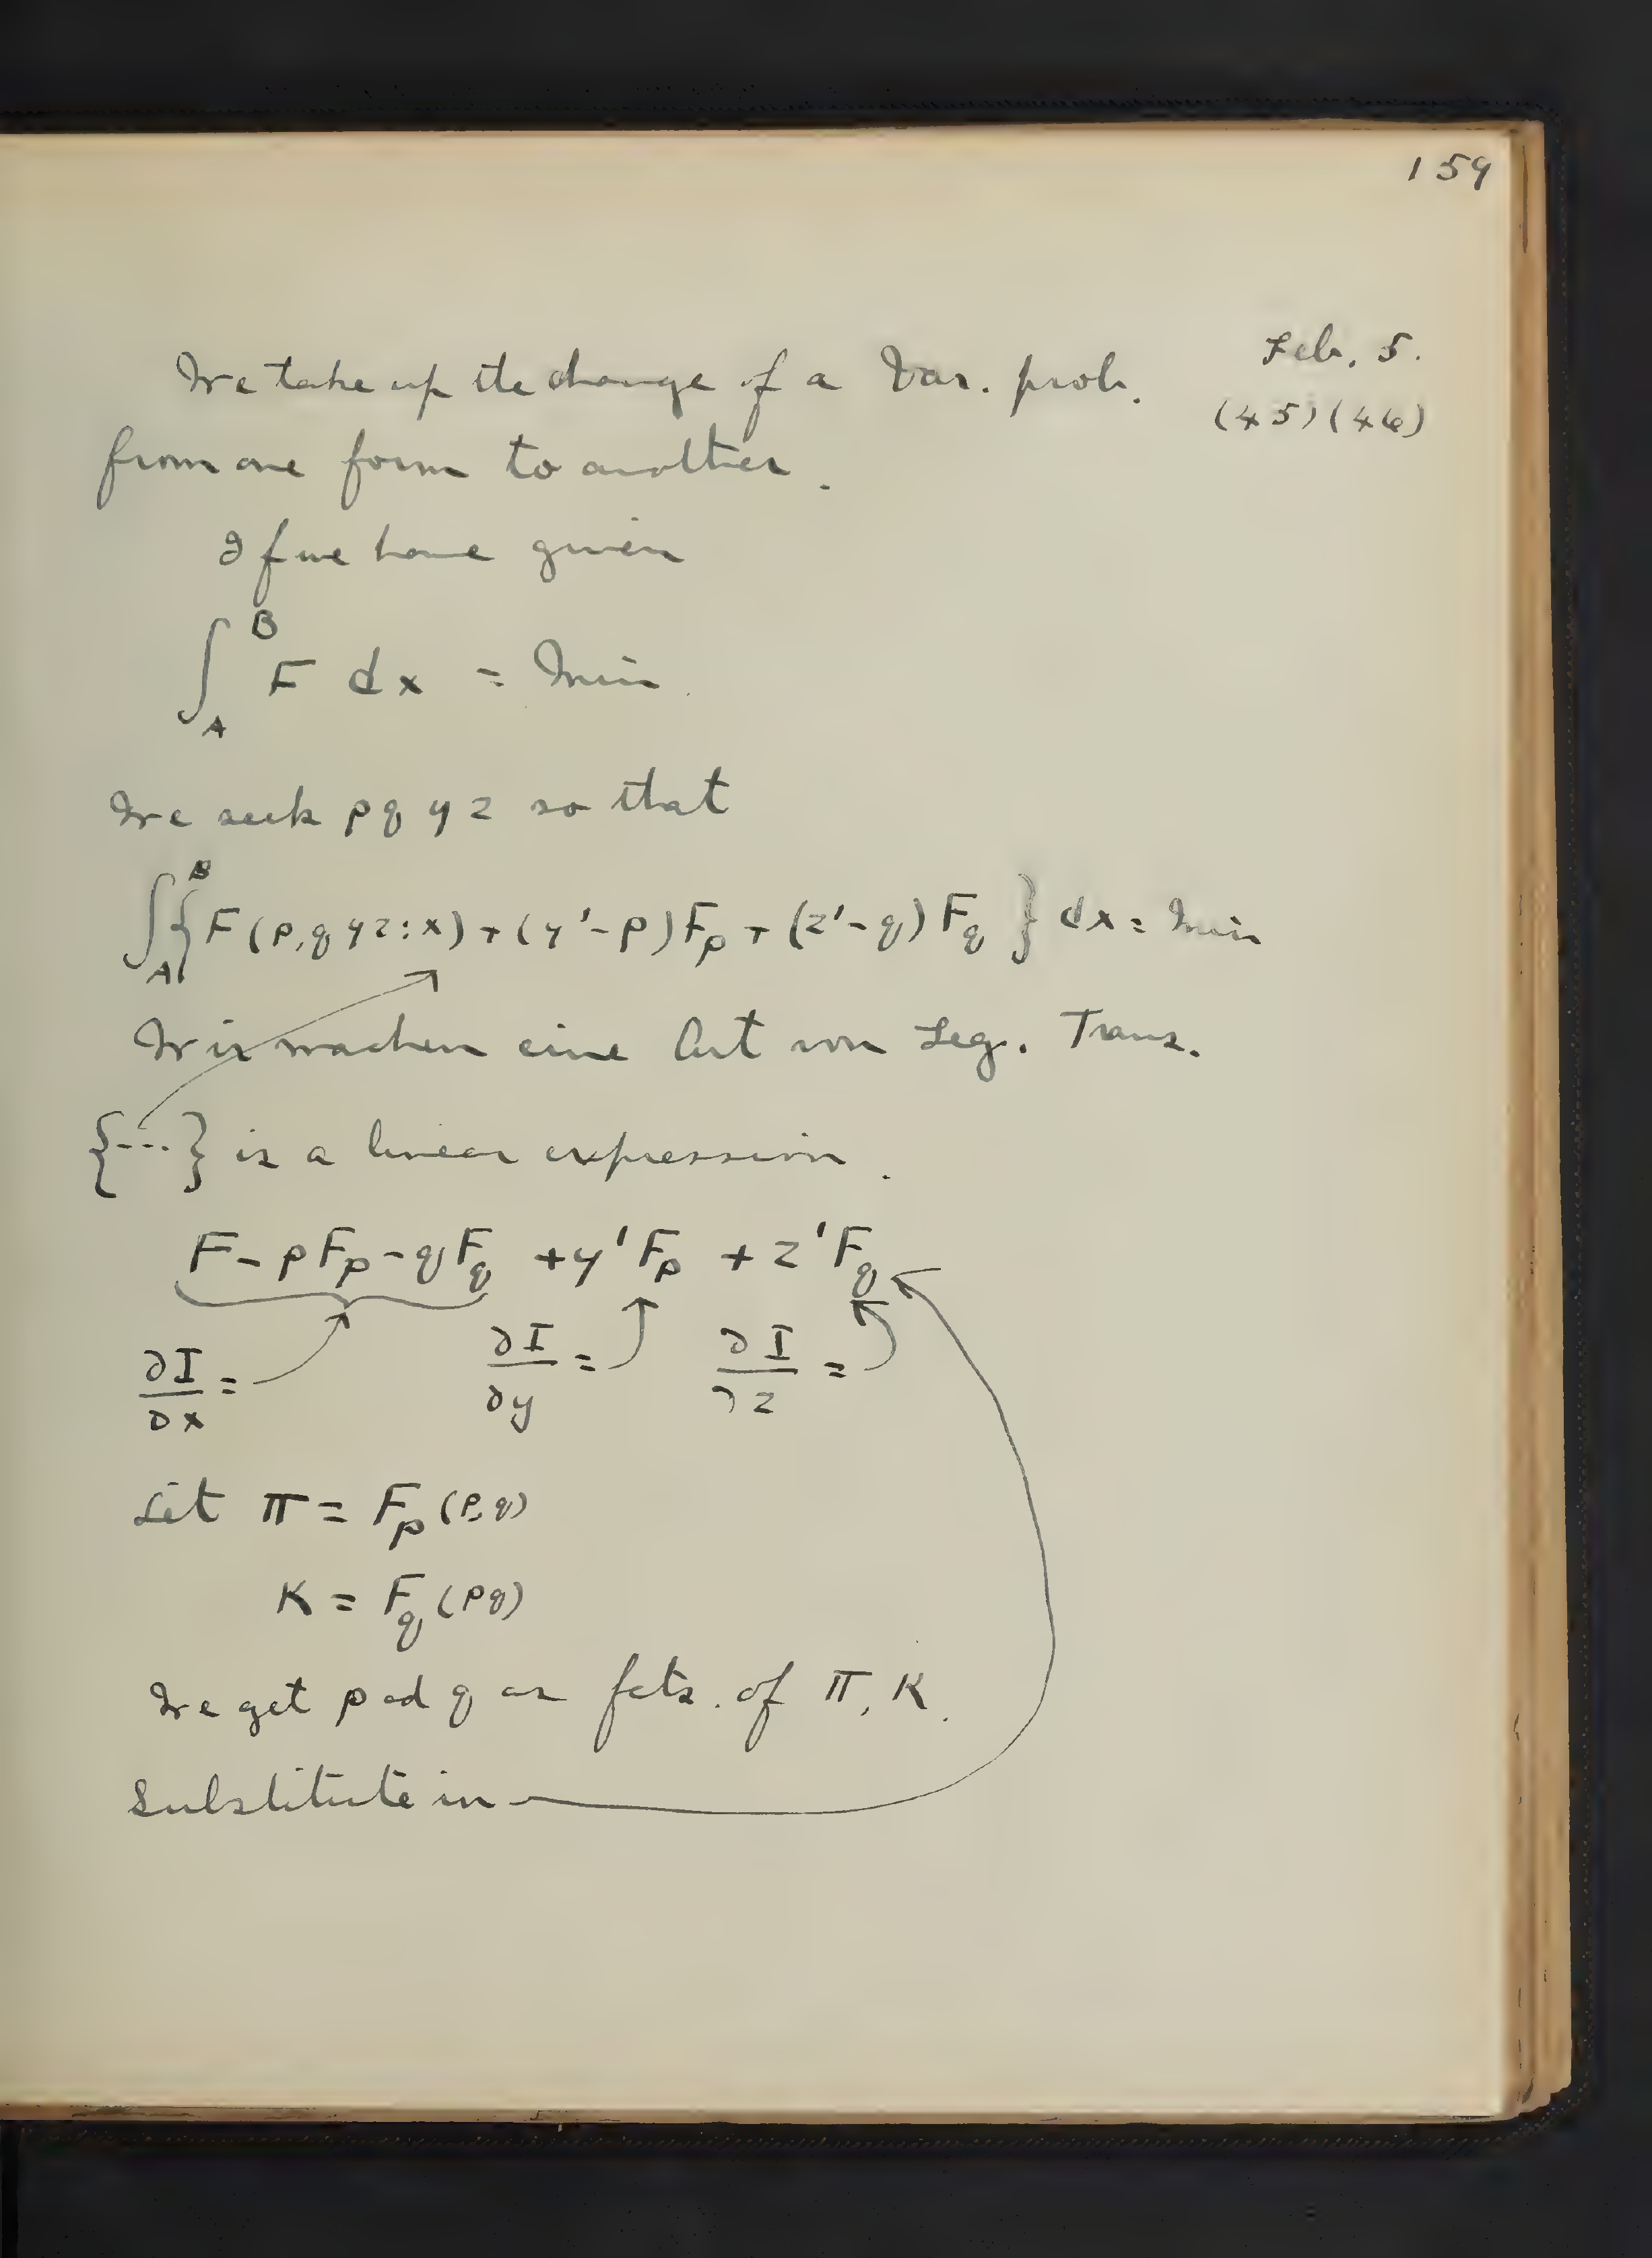 159
Feb. 5.
(45)(46)
We take up the change of a Var. prob.
from one form to another.
If we have given
∫_A^B F dx = Min.
We seek p q y z so that
∫_A^B {F(p,q y z:x) + (y'-p)F_p + (z'-q)F_q} dx = Min
Wir machen eine Art von Leg. Trans.
{---} is a linear expression.
F - pF_p - qF_q + y'F_p + z'F_q
∂I/∂x = ∂I/∂y = ∂I/∂z =
Let π = F_p(p,q)
K = F_q(pq)
We get p ad q as fcts. of π, K.
Substitute in